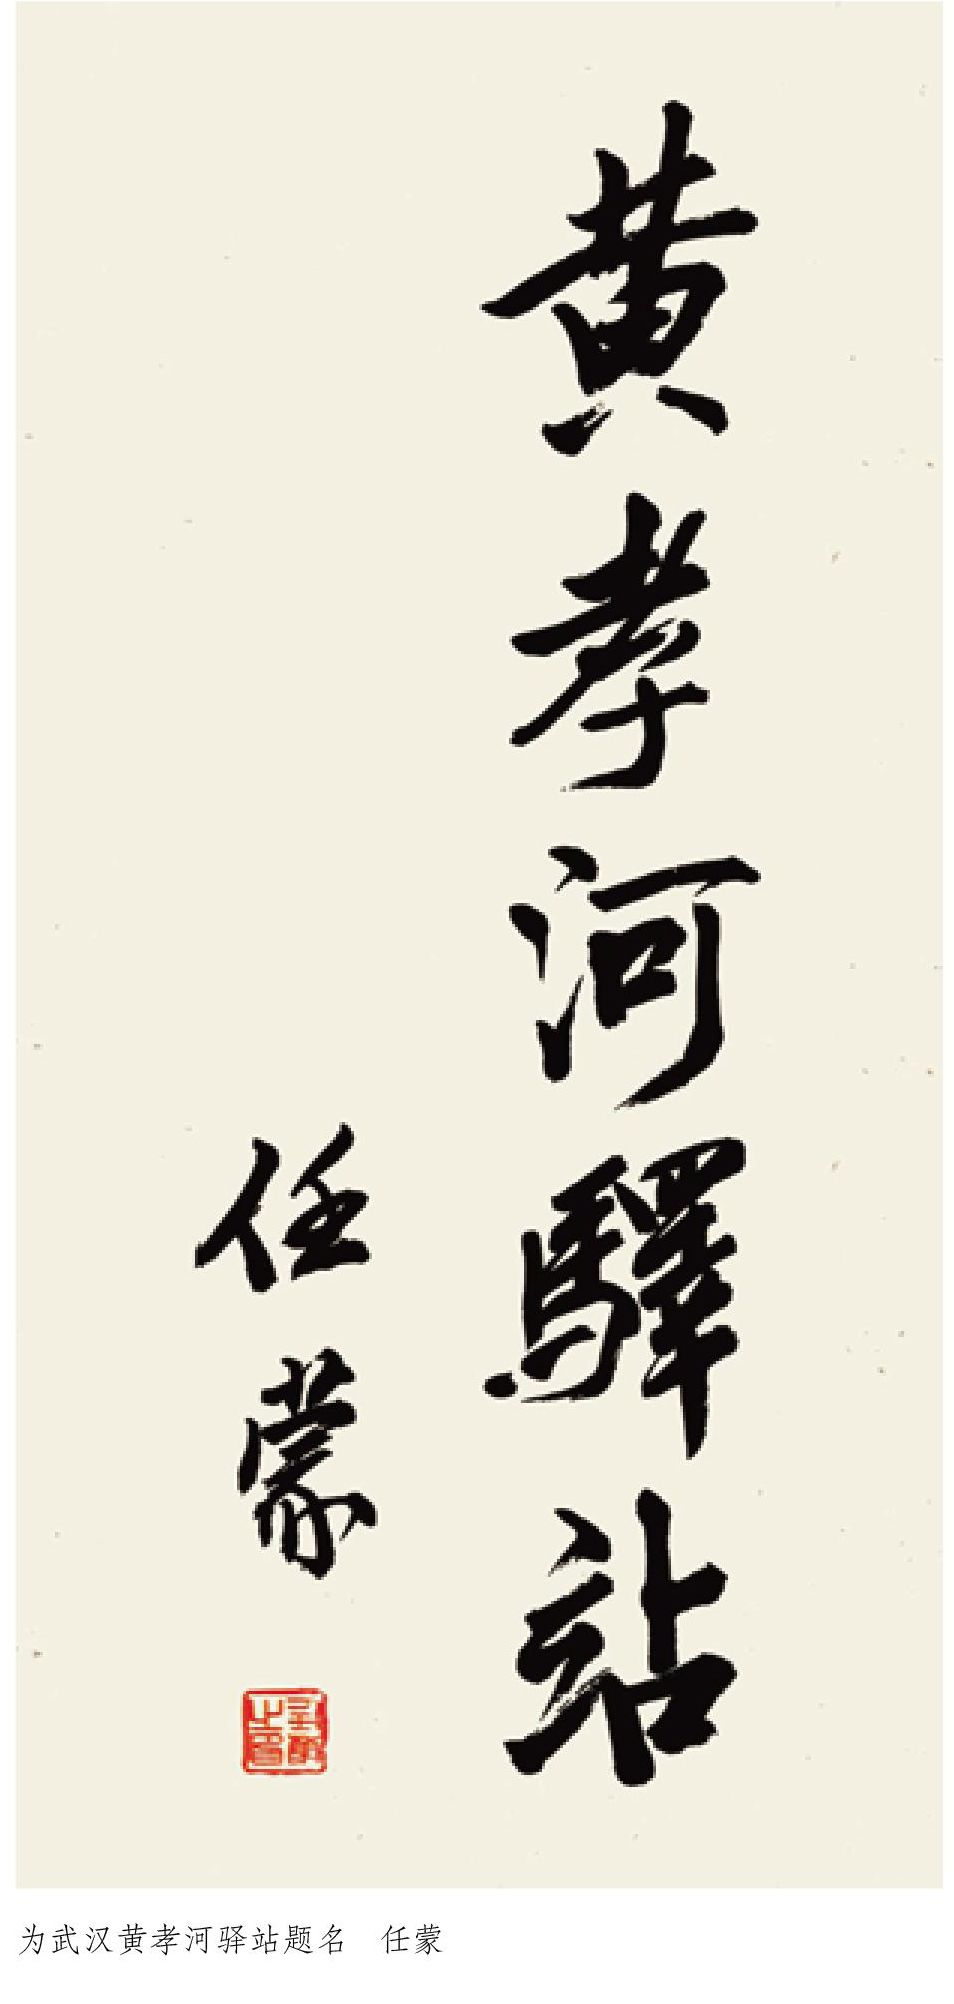 黄孝河驛站
任蒙
为武汉黄孝河驿站题名 任蒙